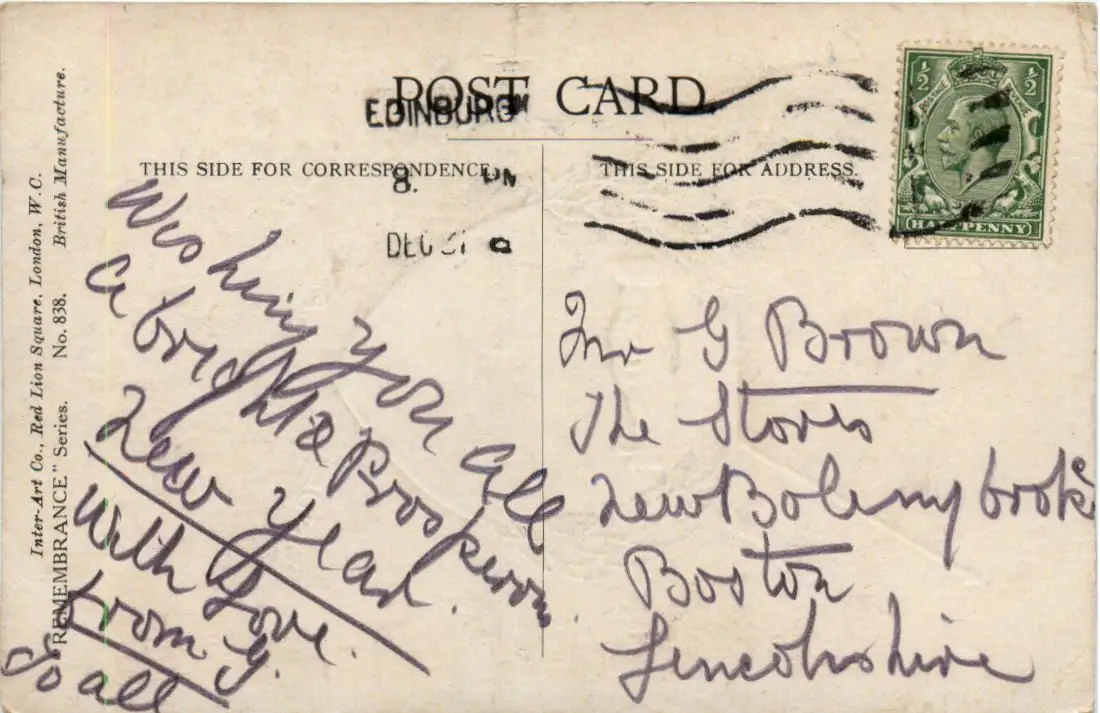 POST CARD
EDINBURGH
8. PM
DEC 31
THIS SIDE FOR CORRESPONDENCE.
THIS SIDE FOR ADDRESS.
½ ½
POSTAGE
HALFPENNY
Inter-Art Co., Red Lion Square, London, W.C.
"REMEMBRANCE" Series. No. 838. British Manufacture.
Wishing you all
a bright & Prosperous
New Year.
With Love.
from G.
To all
Mr G Brown
The Stores
New Bolingbroke
Boston
Lincolnshire